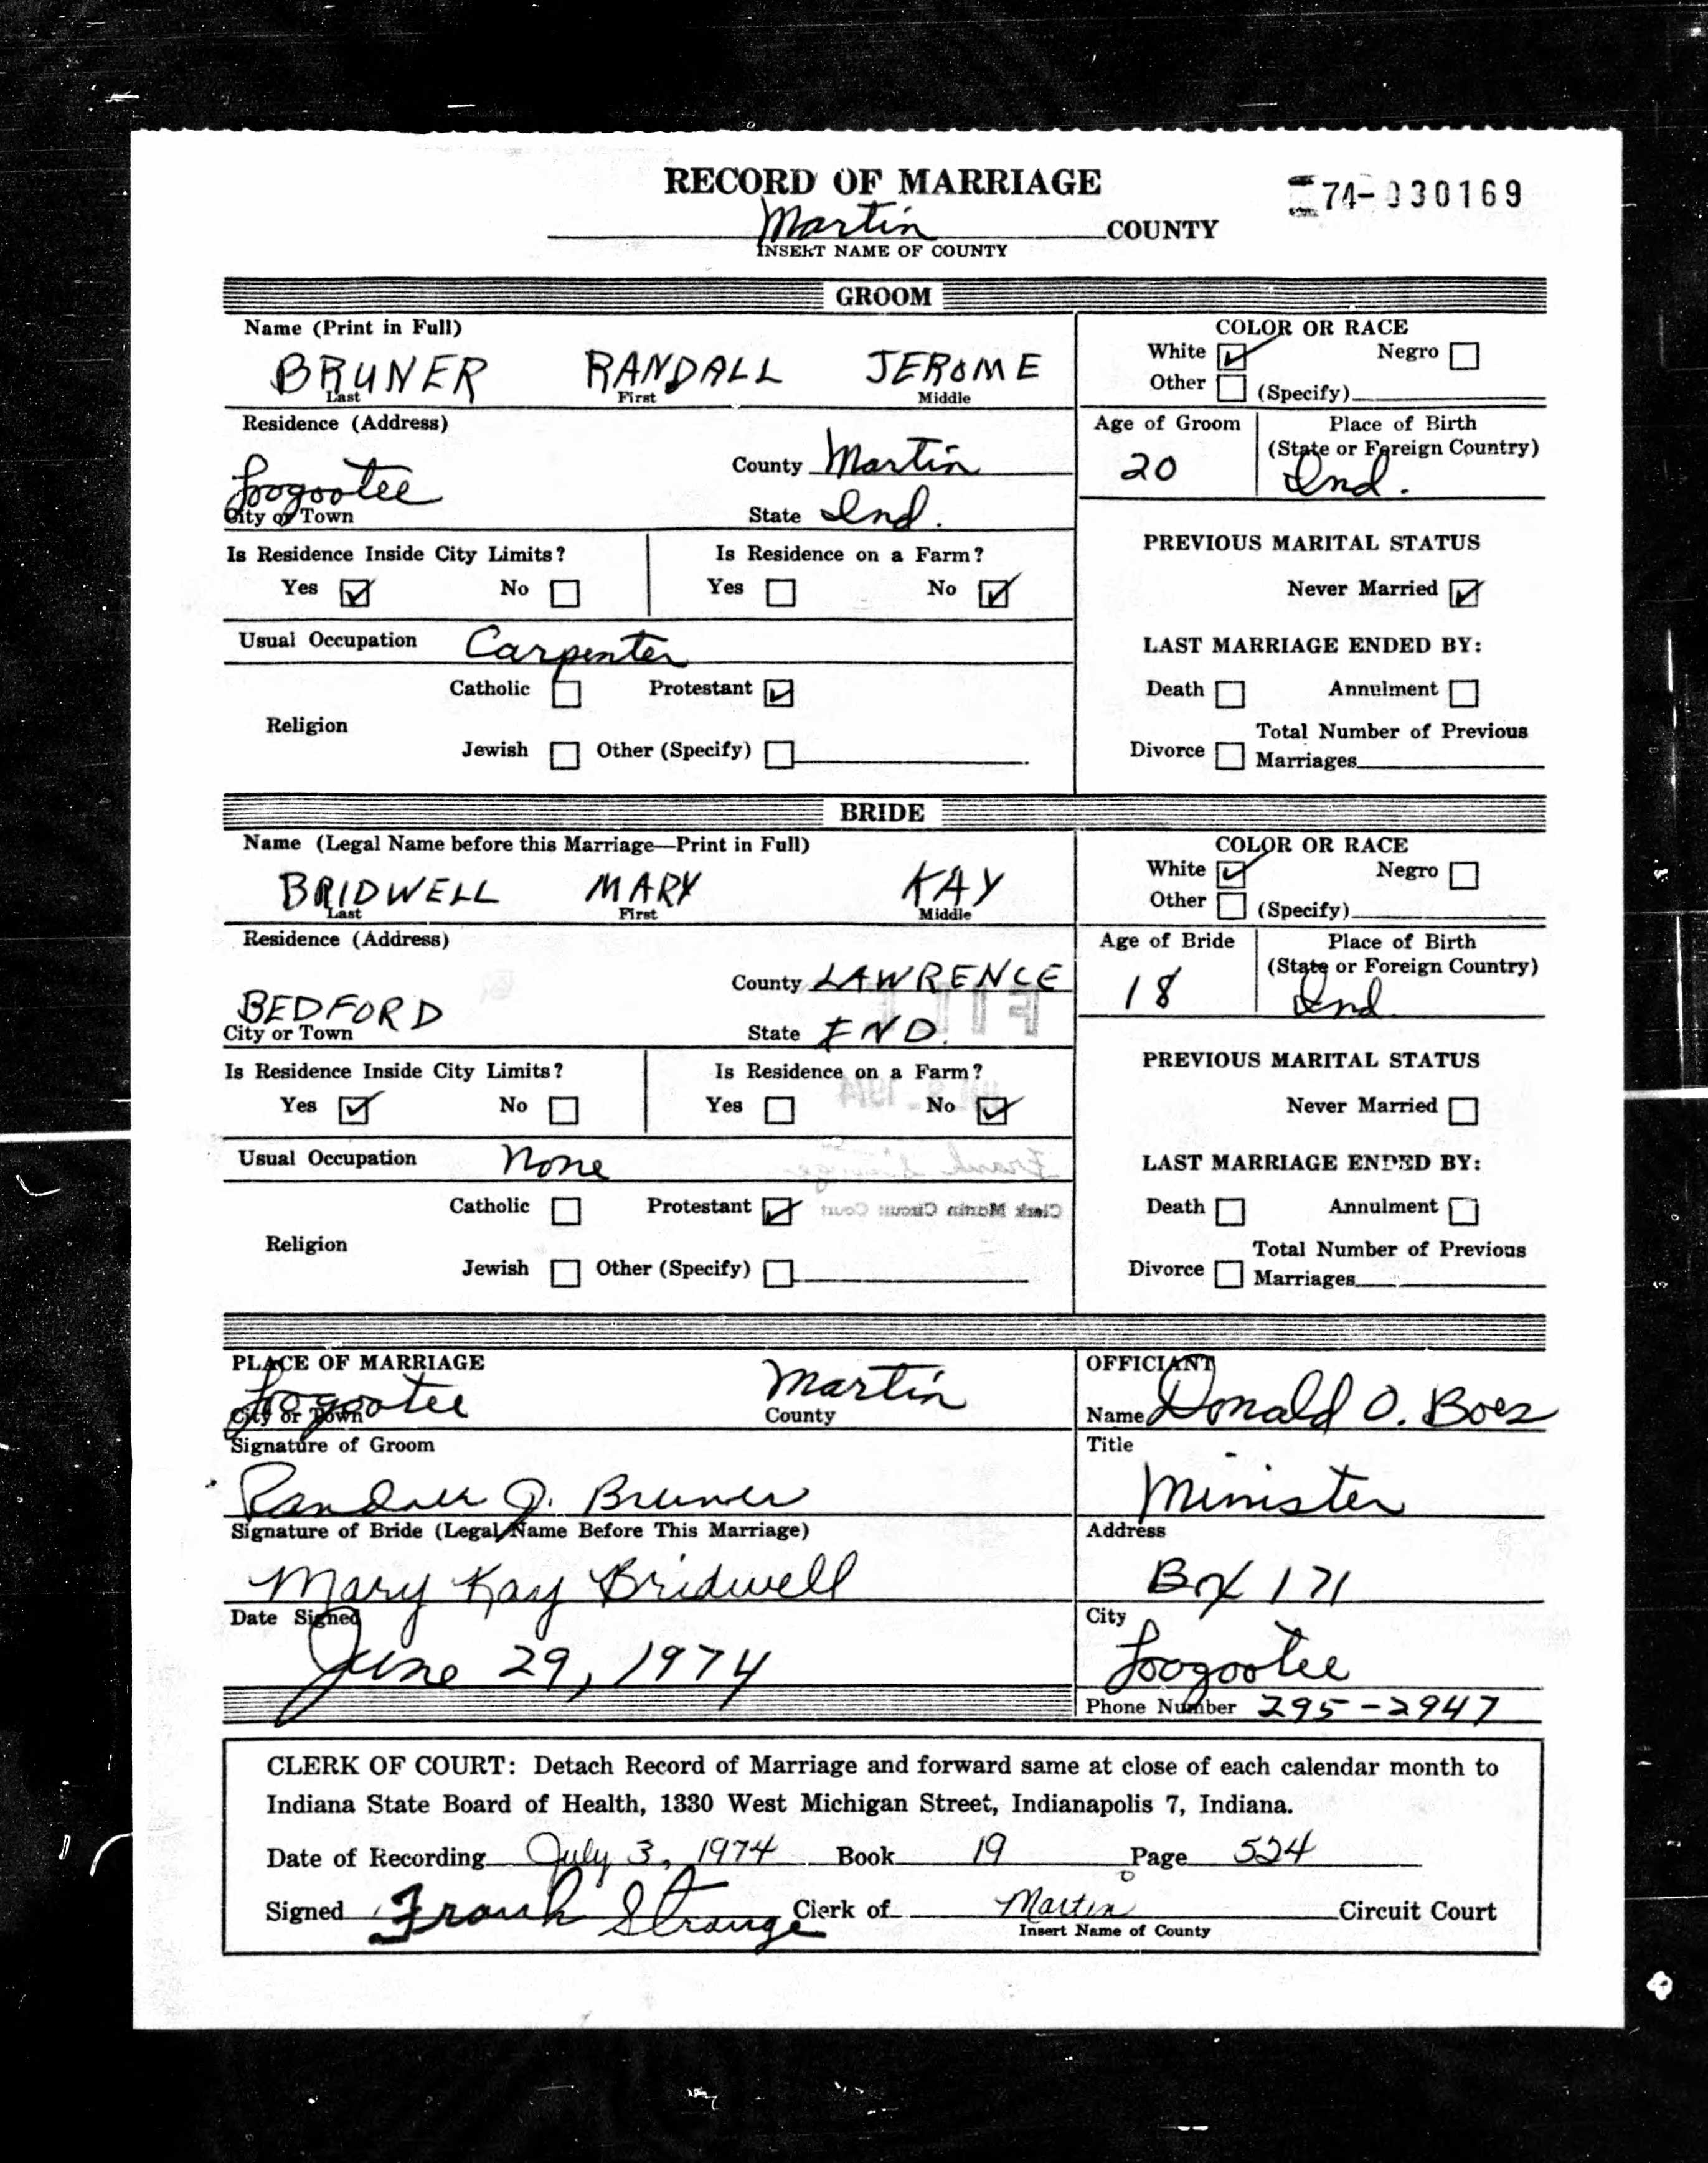 RECORD OF MARRIAGE
74-030169
Martin COUNTY
INSERT NAME OF COUNTY
GROOM
Name (Print in Full)
BRUNER RANDALL JEROME
Last First Middle
COLOR OR RACE
White ☑ Negro ☐
Other ☐ (Specify)
Residence (Address)
Loogootee
City or Town
County Martin
State Ind.
Age of Groom
20
Place of Birth
(State or Foreign Country)
Ind.
Is Residence Inside City Limits?
Yes ☑ No ☐
Is Residence on a Farm?
Yes ☐ No ☑
PREVIOUS MARITAL STATUS
Never Married ☑
Usual Occupation Carpenter
LAST MARRIAGE ENDED BY:
Religion
Catholic ☐ Protestant ☑
Jewish ☐ Other (Specify) ☐
Death ☐ Annulment ☐
Divorce ☐ Total Number of Previous
Marriages
BRIDE
Name (Legal Name before this Marriage—Print in Full)
BRIDWELL MARY KAY
Last First Middle
COLOR OR RACE
White ☑ Negro ☐
Other ☐ (Specify)
Residence (Address)
BEDFORD
City or Town
County LAWRENCE
State IND.
Age of Bride
18
Place of Birth
(State or Foreign Country)
Ind.
Is Residence Inside City Limits?
Yes ☑ No ☐
Is Residence on a Farm?
Yes ☐ No ☑
PREVIOUS MARITAL STATUS
Never Married ☐
Usual Occupation None
LAST MARRIAGE ENDED BY:
Religion
Catholic ☐ Protestant ☑
Clerk Martin Circuit Court
Jewish ☐ Other (Specify) ☐
Death ☐ Annulment ☐
Divorce ☐ Total Number of Previous
Marriages
PLACE OF MARRIAGE
Loogootee Martin
City or Town County
Signature of Groom
Randall J. Bruner
Signature of Bride (Legal Name Before This Marriage)
Mary Kay Bridwell
Date Signed
June 29, 1974
OFFICIANT
Name Donald O. Boes
Title
Minister
Address
Box 171
City
Loogootee
Phone Number 295-2947
CLERK OF COURT: Detach Record of Marriage and forward same at close of each calendar month to
Indiana State Board of Health, 1330 West Michigan Street, Indianapolis 7, Indiana.
Date of Recording July 3, 1974 Book 19 Page 524
Signed Frank Strange Clerk of Martin Circuit Court
Insert Name of County